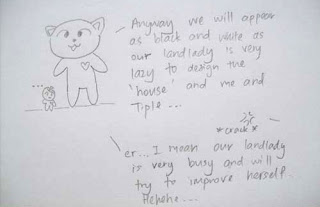 Anyway we will appear
as black and white as
our landlady is very
lazy to design the
'house' and me and
Tiple...
...
*crack*
er... I mean our landlady
is very busy and will
try to improve herself.
Hehehe...